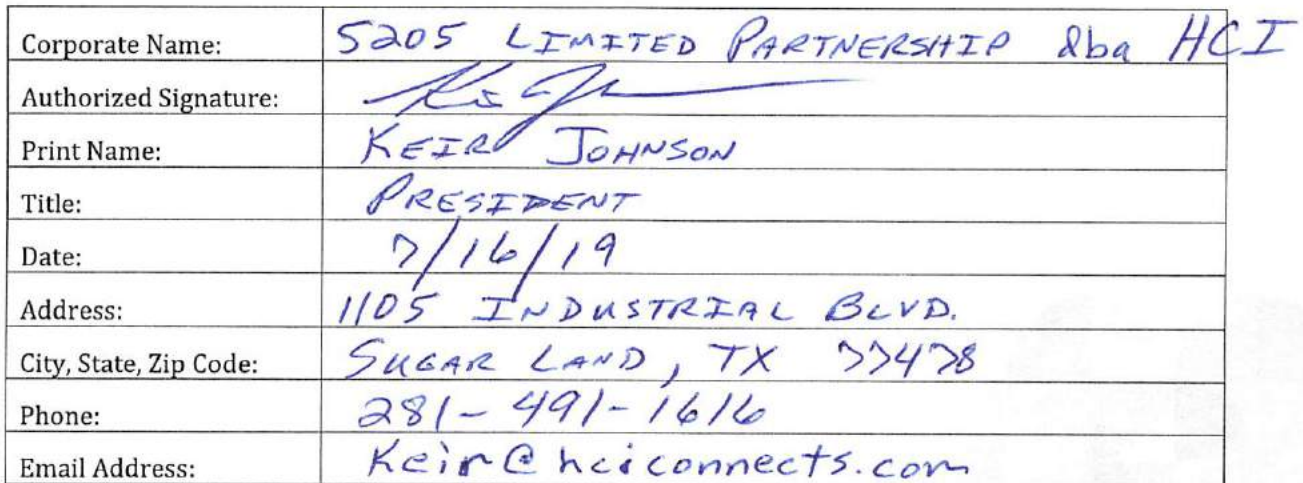 Corporate Name: 5205 LIMITED PARTNERSHIP dba HCI
Authorized Signature:
Print Name: KEIR JOHNSON
Title: PRESIDENT
Date: 7/16/19
Address: 1105 INDUSTRIAL BLVD.
City, State, Zip Code: SUGAR LAND, TX 77478
Phone: 281-491-1616
Email Address: Keir@hciconnects.com